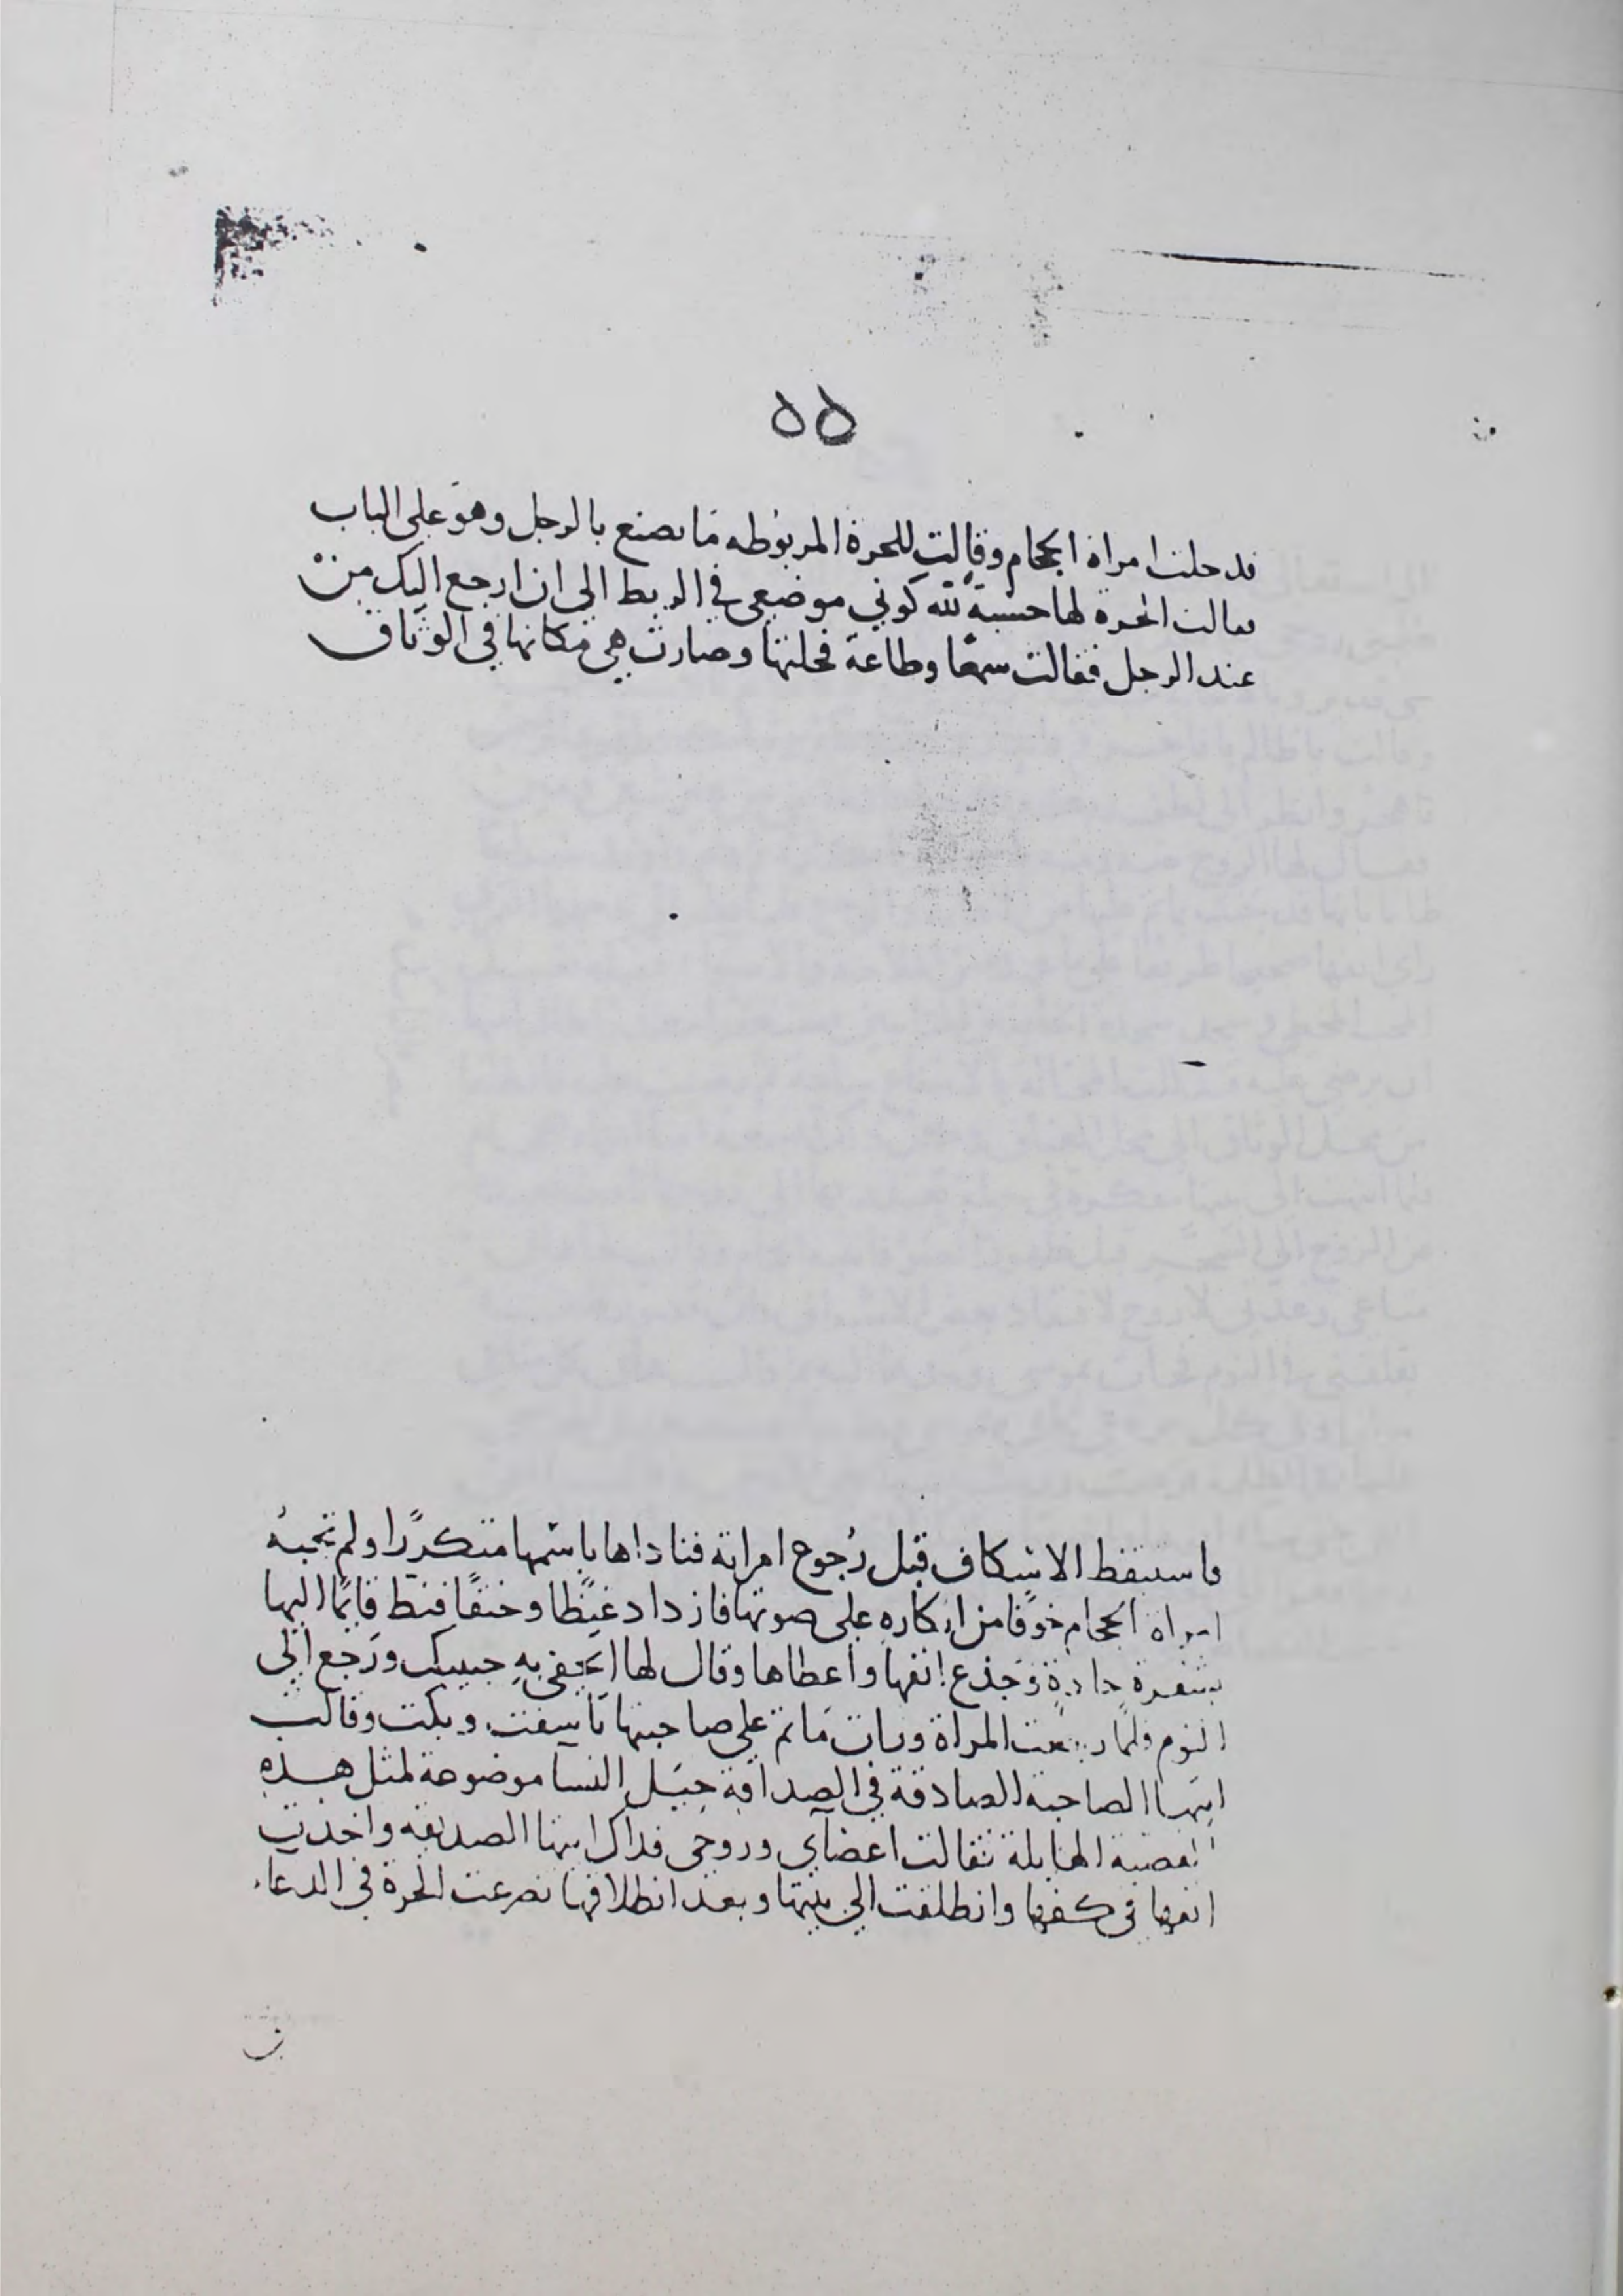 ٥٥
فدخلت امراة الحجام وقالت للحرة المربوطه ما نصنع بالرجل وهو على الباب
فقالت الحرة لها حسبة لله كوني موضعي في الربط الي ان ارجع اليك من
عند الرجل فقالت سمعًا وطاعة فحلتها وصارت هي مكانها في الوثاق
فاستيقظ الاسكاف قبل رُجوع امراته فناداها باسمها متكررًا ولم تجبهُ
امراة الحجام خوفًا من انكاره على صوتها فازداد غيظًا وحنقًا فنط قايمًا اليها
بشفرة حادةٍ وجذع انفها واعطاها وقال لها اتحفي بهِ حبيبك ورجع الي
النوم فلما رجعت المراة ورات مَا تم على صاحبتها تاسفت وبكت وقالت
ايتها الصاحبة الصادقة في الصداقة حِيَل النسا موضوعة لمثل هذهِ
القصية الهايلة فقالت اعضآي وروحي فداك ايتها الصديقه واخدت
انفها في كفها وانطلقت الي بيتها وبعد انطلاقها تضرعت الحرة في الدعاء